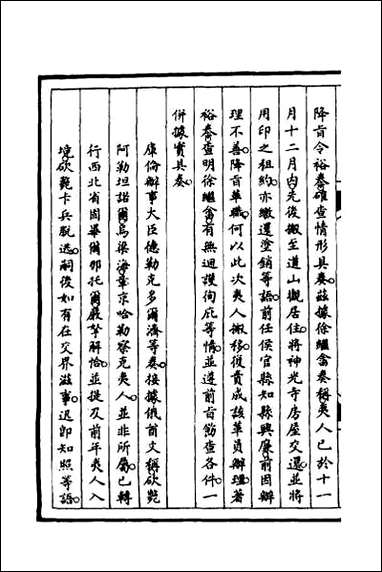 降旨令裕泰確查情形具奏茲據徐繼畬奏稱夷人已於十一
月十二月內先後搬至道山觀居住將神光寺房屋交還並將
用印之租約亦繳還塗銷等語前任侯官縣知縣興廉前因辦
理不善降旨革職何以此次夷人搬移復責成該革員辦理著
裕泰查明徐繼畬有無迴護徇庇等情並遵前旨飭查各件一
併據實具奏
庫倫辦事大臣德勒克多爾濟等奏接據俄首文稱砍斃
阿勒坦諾爾烏梁海章京哈勒察克夷人並非所屬已轉
行西北省固畢爾那托爾嚴拏解恰並提及前年夷人入
境砍斃卡兵脫逃嗣後如有在交界滋事迅即知照等語